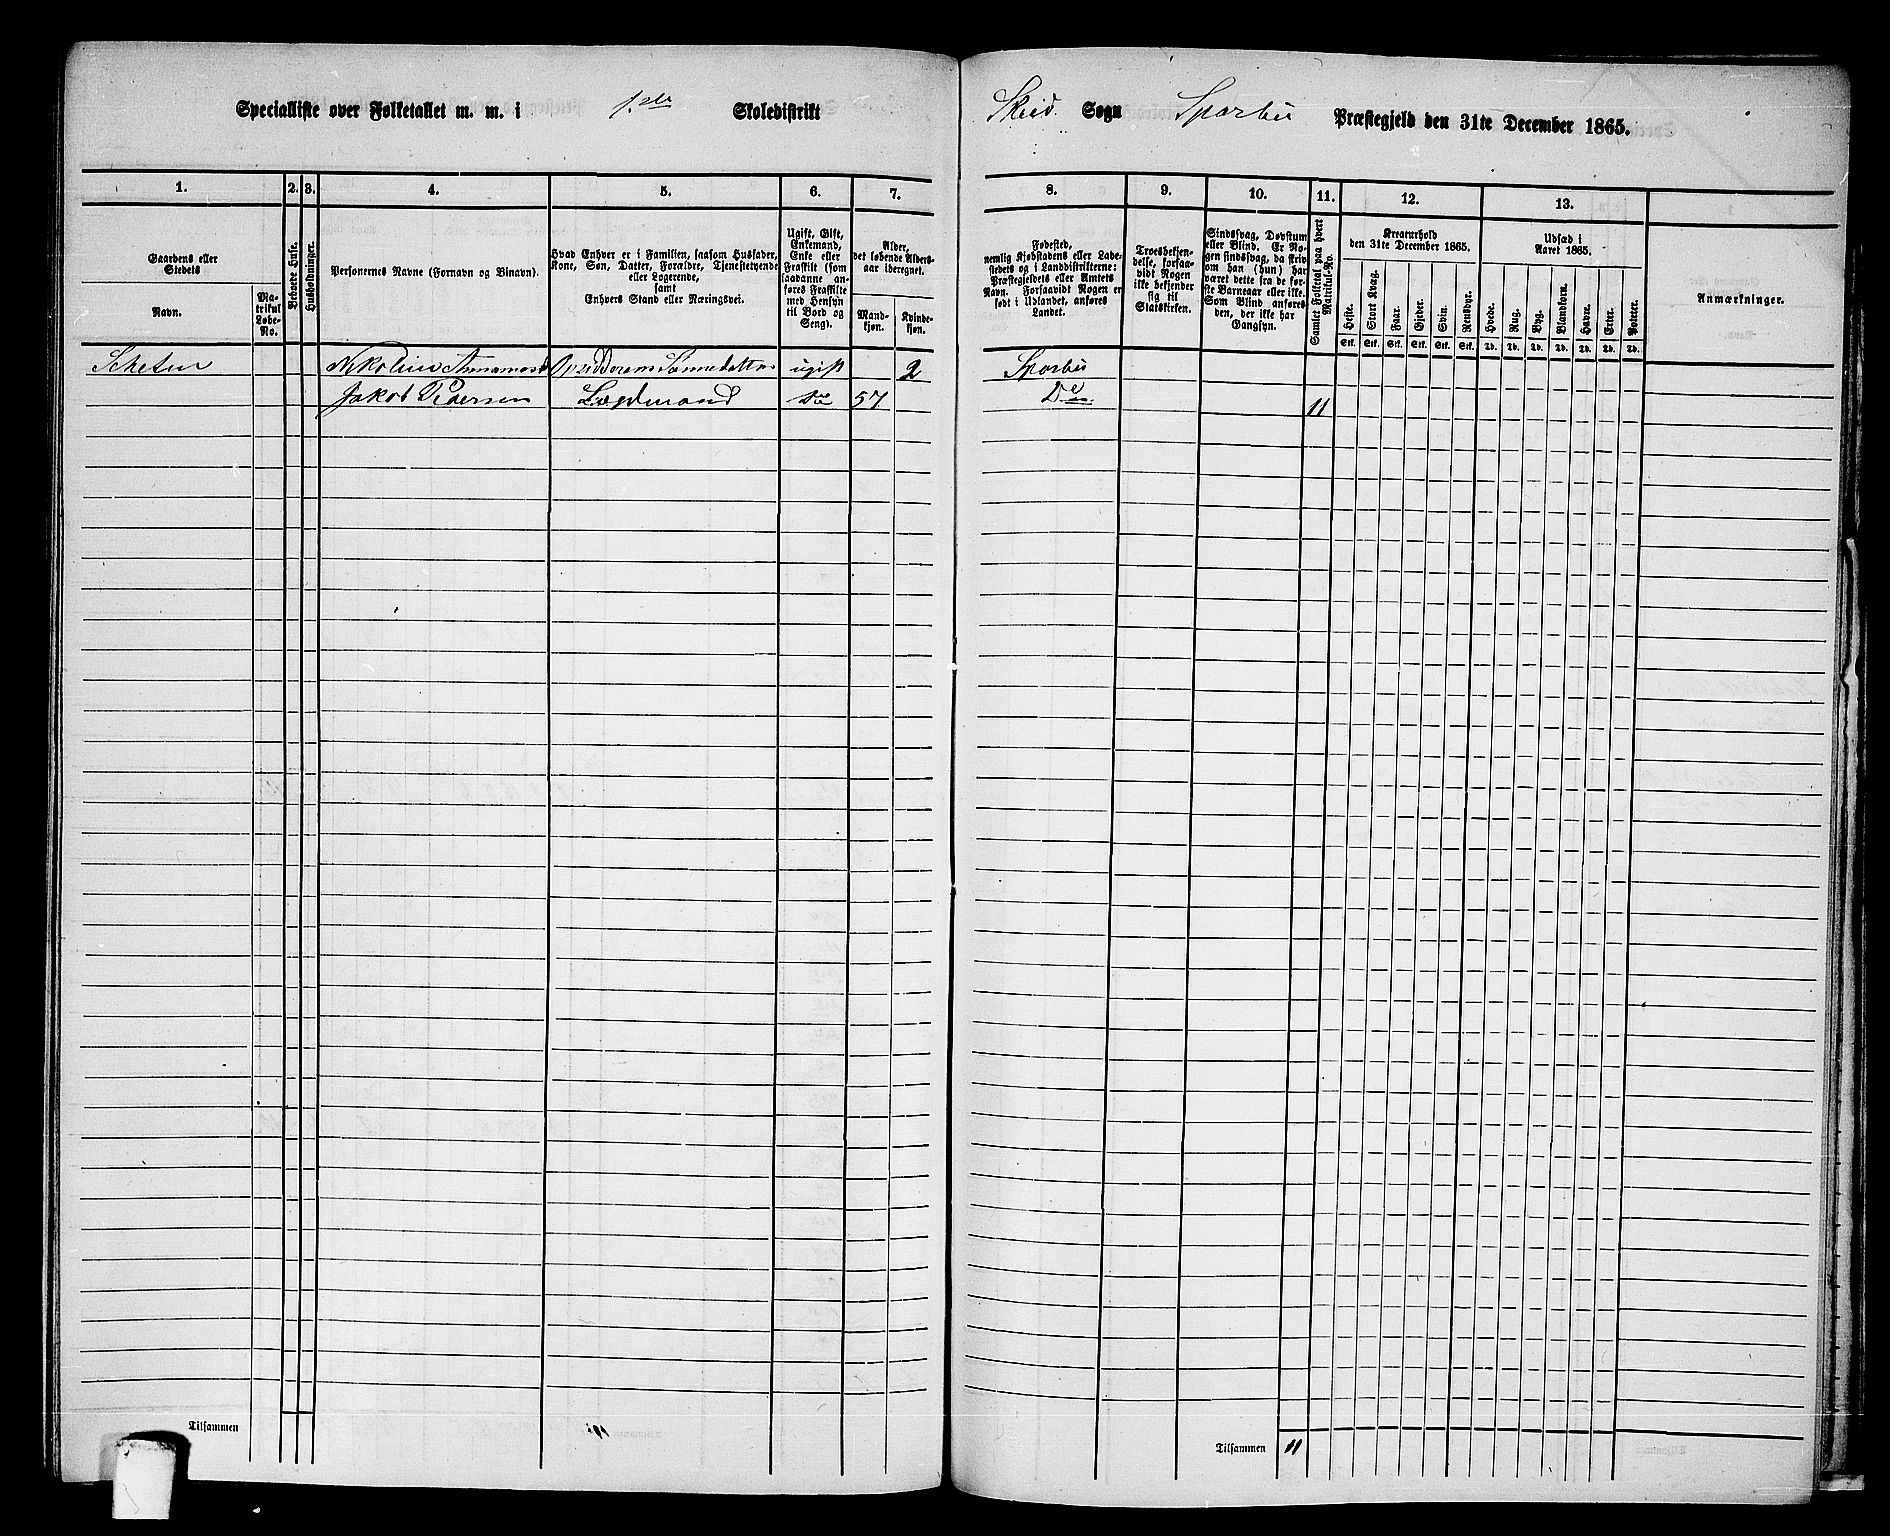 Specialliste over Folketallet m. m. i 1ste Skoledistrikt
Skeid Sogn Sparbu Præstegjeld den 31te December 1865.
1. 2. 3. 4. 5. 6. 7.
8. 9. 10. 11. 12. 13.
Gaardens eller Stedets
Navn.
Matrikul Løbe-No.
Beboede Huse.
Husholdninger.
Personernes Navne (Fornavn og Binavn).
Hvad Enhver er i Familien, saasom Husfader,
Kone, Søn, Datter, Forældre, Tjenestetyende
eller Logerende,
samt
Enhvers Stand eller Næringsvei.
Ugift, Gift,
Enkemand,
Enke eller
Fraskilt (som
saadanne an-
føres Fraskilte
med Hensyn
til Bord og
Seng).
Alder,
det løbende Alders-
aar iberegnet.
Mand-
kjøn.
Kvinde-
kjøn.
Fødested,
nemlig Kjøbstadens eller Lade-
stedets og i Landdistrikterne:
Præstegjeldets eller Amtets
Navn. Forsaavidt Nogen er
født i Udlandet, anføres
Landet.
Troesbekjen-
delse, forsaa-
vidt Nogen
ikke bekjender
sig til
Statskirken.
Sindssvag, Døvstum
eller Blind. Er No-
gen sindssvag, da skriv
om han (hun) har
været dette fra de før-
ste Barneaar eller ikke.
Som Blind anføres
den, der ikke har
Gangsyn.
Samlet Folketal paa hvert
Matrikul-No.
Kreaturhold
den 31te December 1865.
Heste. Stort Kvæg. Faar. Gjeder. Svin. Rensdyr.
Stk. Stk. Stk. Stk. Stk. Stk.
Udsæd i
Aaret 1865.
Hvede. Rug. Byg. Blandkorn. Havre. Erter. Poteter.
Td. Td. Td. Td. Td. Td. Td.
Anmærkninger.
ugift 2 Sparbu
Jakob Pedersen Lægdmand do 57 Do 11
Tilsammen
Tilsammen 11